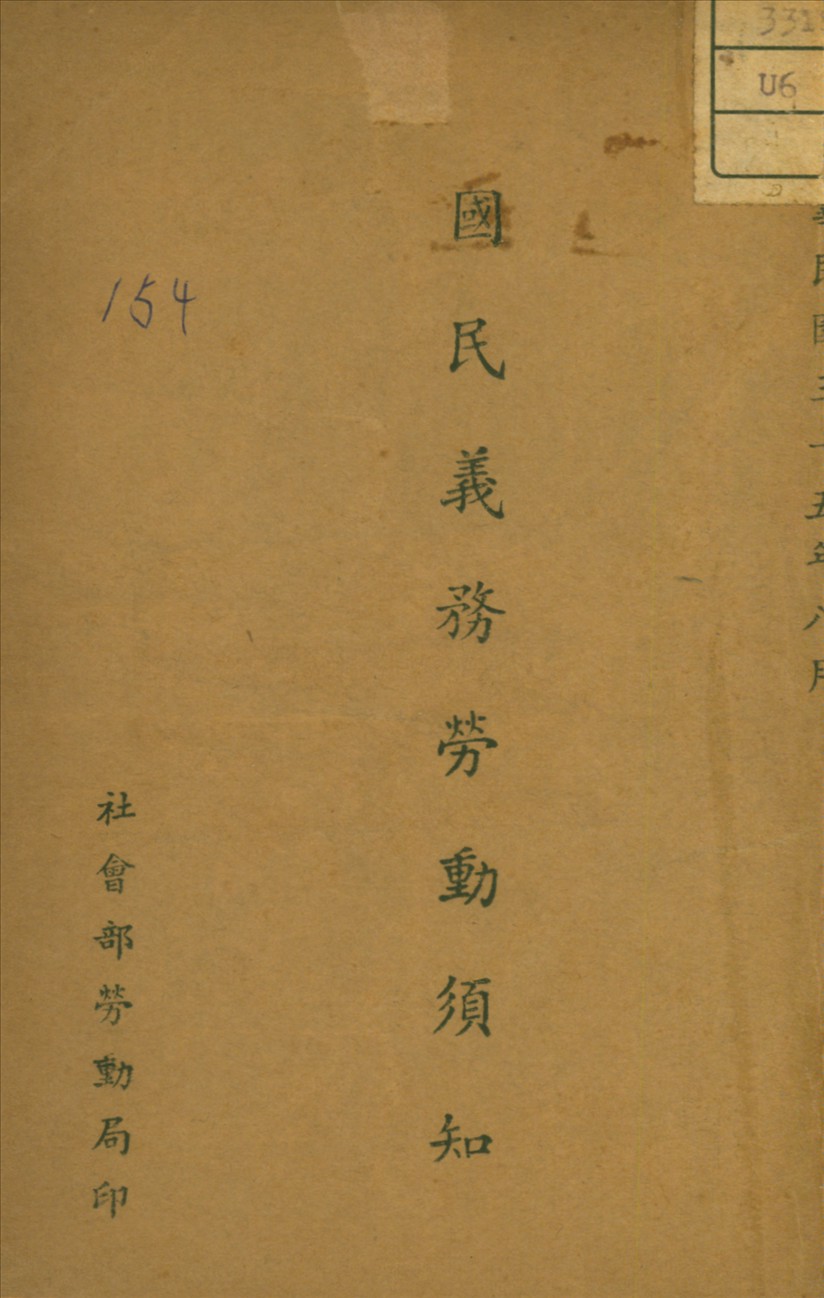 民國三十五年八月
國民義務勞動須知
社會部勞動局印
154
331
U6